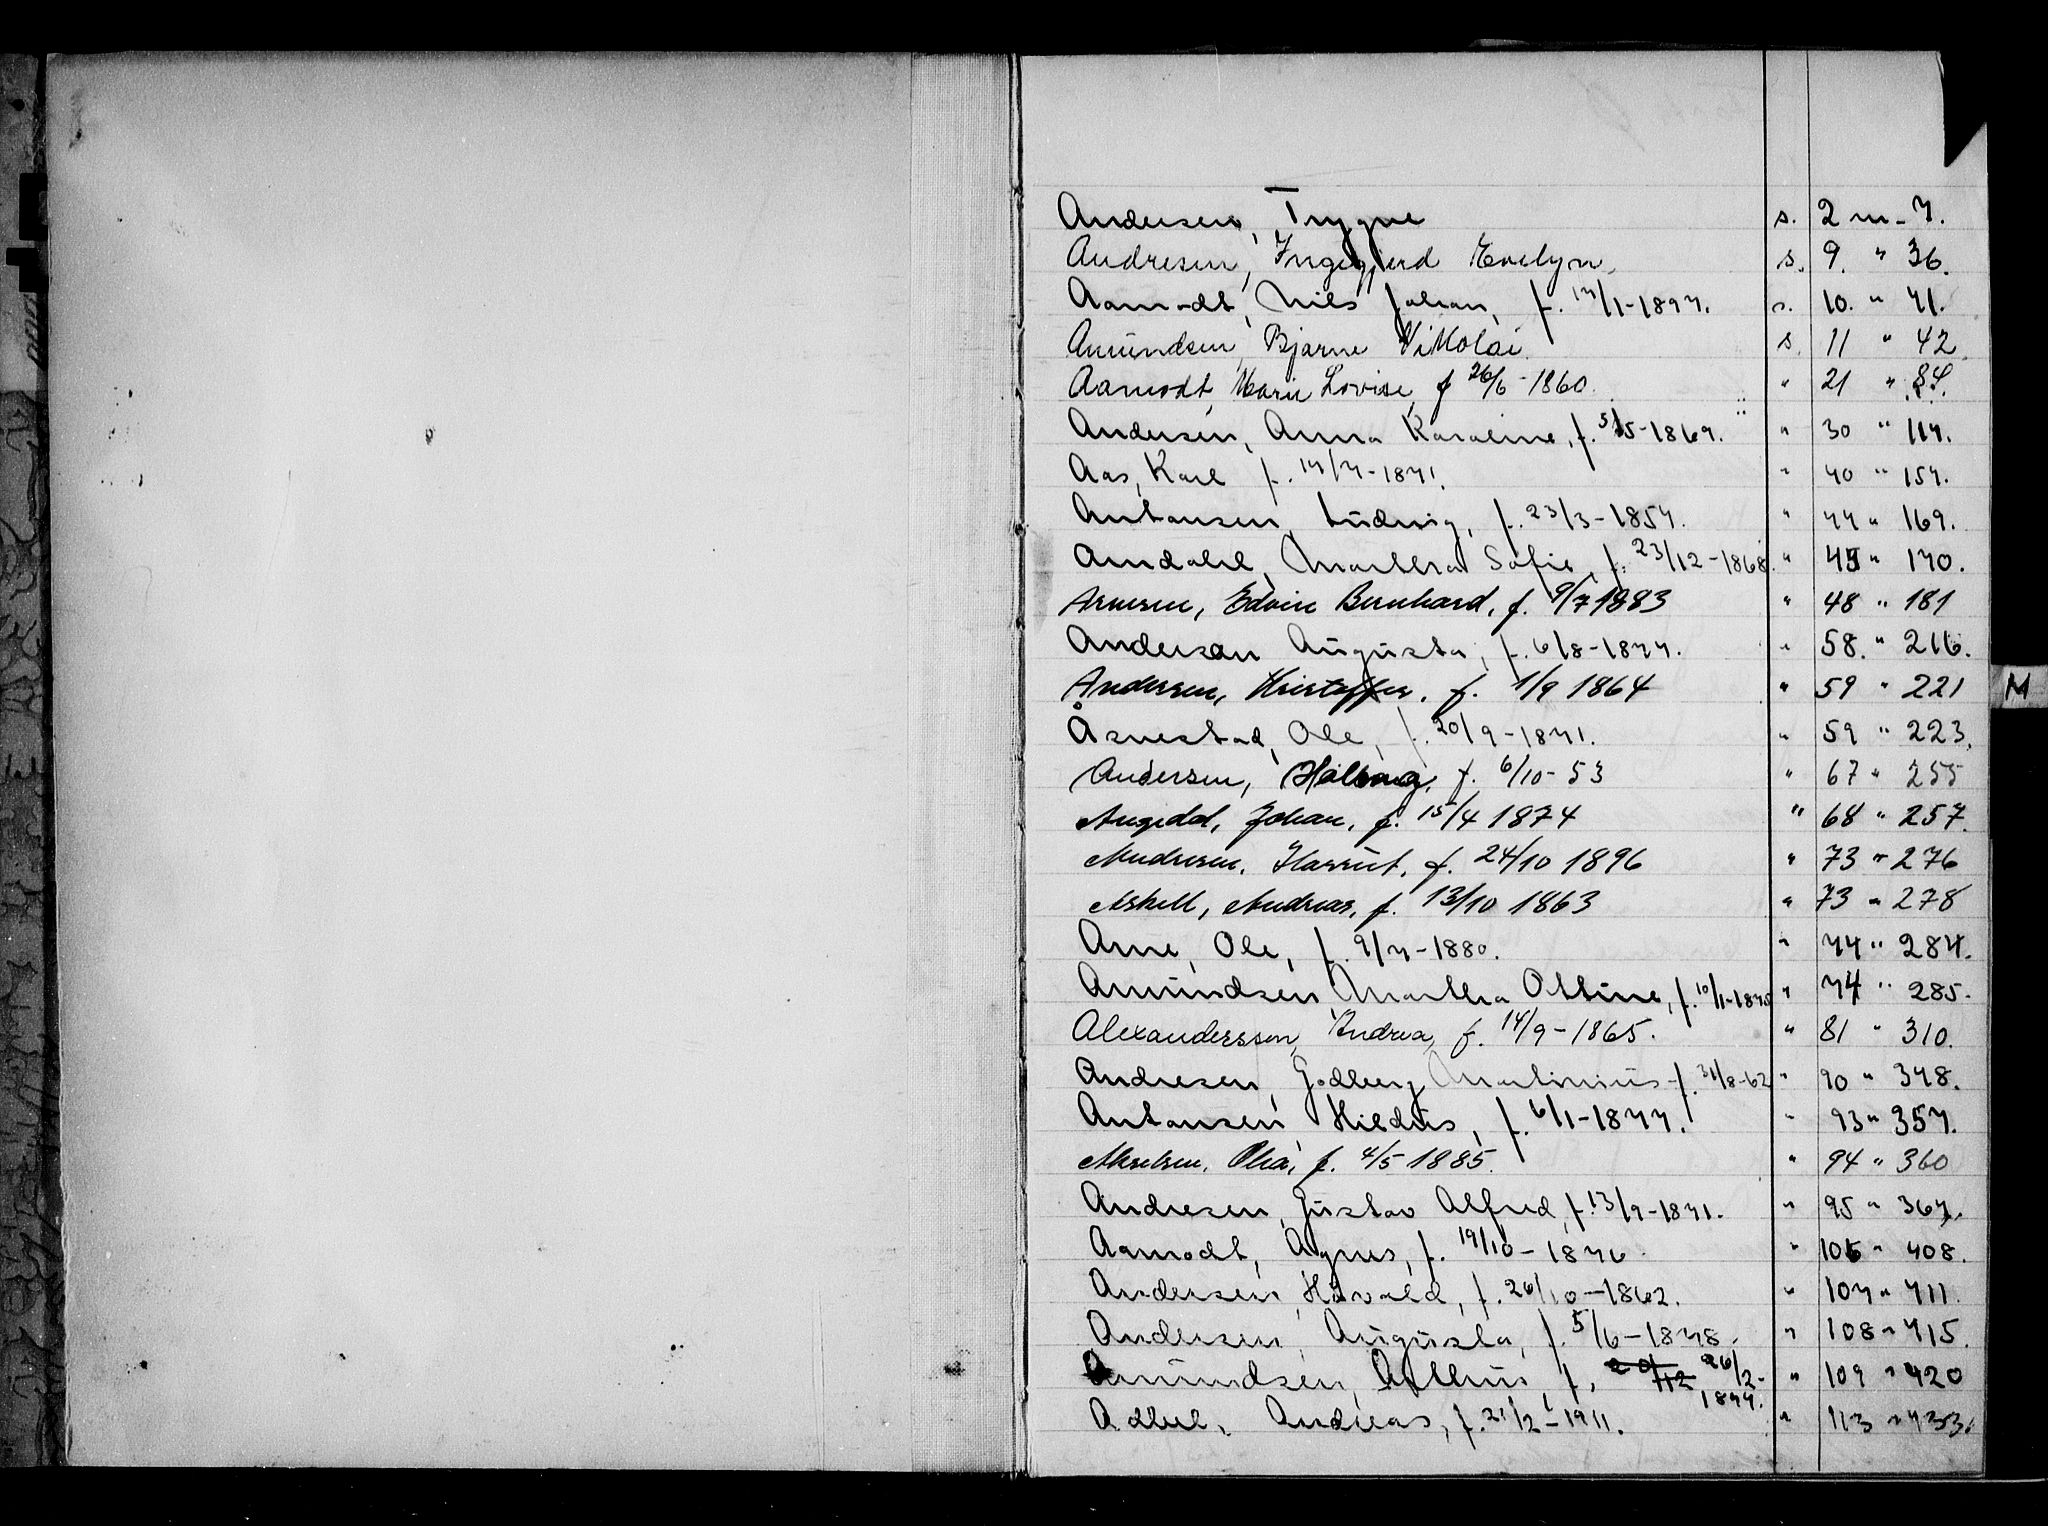 Andersen, Trygve s. 2 m - 7.
Andresen, Ingegjerd Evelyn, s. 9. " 36.
Aamodt, Nils Johan, f. 17/1-1897. s. 10. " 41.
Amundsen, Bjarne Nikolai s. 11 " 42
Aamodt, Marie Lovise, f 26/6-1860. " 21 " 84.
Andersen, Anna Karoline, f. 5/5-1869. " 30 " 117.
Aas, Karl f. 17/7-1871. " 40 " 157.
Antonsen, Ludvig, f. 23/3-1857. " 44 " 169.
Amdahl, Martha Sofie, f. 23/12-1868. " 45 " 170.
Arnesen, Edvin Bernhard, f. 9/7 1883 " 48 " 181
Anderson Augusta, f. 6/8-1877. " 58. " 216.
Andersen, Kristoffer, f. 1/9 1864 " 59 " 221
Åsnestad, Ole, f. 20/9-1871. " 59 " 223.
Andersen, f. 6/10-53 " 67 " 255
Angedal, Johan, f. 15/4 1874 " 68 " 257.
Andresen, Harriet, f. 24/10 1896 " 73 " 276
Askell, Andreas, f. 13/10 1863 " 73 " 278
Arne, Ole, f. 9/7-1880. " 74 " 284.
Amundsen, Martha Ottine, f. 10/1-1875 " 74 " 285.
Alexandersson, Andrea, f. 14/9-1865. " 81 " 310.
Andresen, Godberg Martinius f. 31/8-62 " 90 " 348.
Antonsen Hildus, f. 6/1-1877. " 93 " 357.
Akselsen, Olea, f. 4/5 1885. " 94 " 360
Andresen, Gustav Alfred, f. 13/9-1871. " 95 " 367.
Aamodt, Agnes, f. 19/10-1876. " 106 " 408.
Andersen, Havald, f. 26/10-1862. " 107 " 411.
Andersen, Augusta, f. 5/6-1878. " 108 " 415.
Amundsen, Arthur, f. 20/12 26/2-1877. " 109 " 420
Andreas, f. 21/2-1911. " 113 " 433.
M